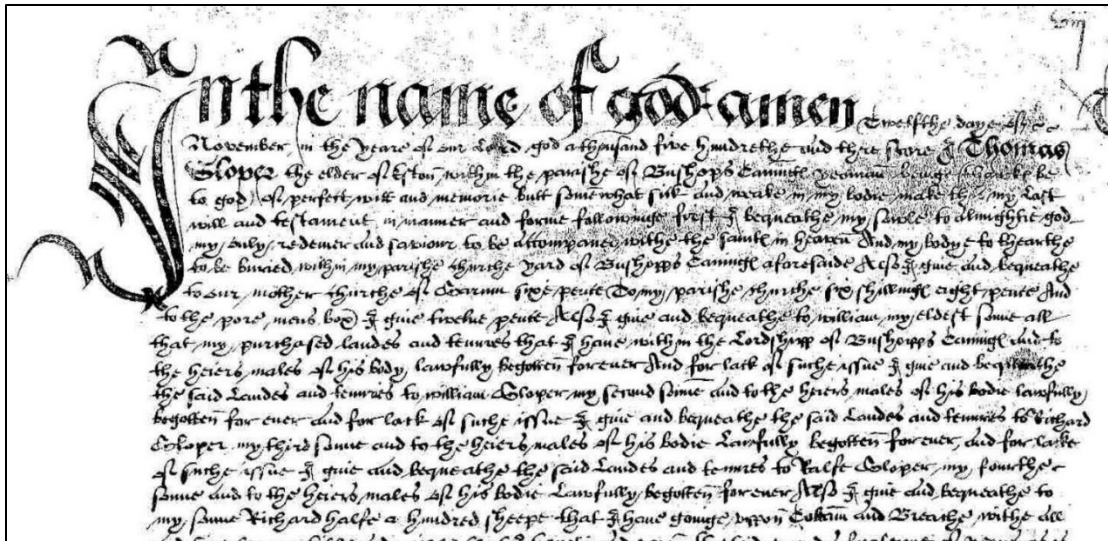 In the name of god: amen Twelfthe daye of
November in the yeare of our Lord god a thousand five hundrethe and thre score I Thomas
Sloper the elder of Eston within the parishe of Bushopps Canningl yeoman beinge thanckl be
to god of perfett witt and memorie butt somewhat sick and weake in my bodie make this my Last
will and testament in manner and forme followinge first I bequeathe my sowle to almightie god
my only redemer and saviour to be accompanied withe the saintl in heaven And my bodye to thearthe
to be buried within my parishe churche yard of Bushopps Canningl aforesaide Also I giue and bequeathe
to our mother churche of Sarum sixe pence To my parishe churche six shillingl eight pence And
to the pore mens box I giue twelue pence Also I giue and bequeathe to william my eldest sonne all
that my purchased landes and tenures that I haue within the Lordshipp of Bushopps Canningl and to
the heiers males of his body lawfully begotten for ever And for lack of suche issue I giue and bequeathe
the said Landes and tenures to william Sloper my second sonne and to the heiers males of his bodie lawfully
begotten for ever and for lack of suche issue I giue and bequeathe the said Landes and tenures to Richard
Sloper my third sonne and to the heiers males of his bodie Lawfully begotten for ever, and for lacke
of suche issue I giue and bequeathe the said Landes and tenures to Ralfe Sloper my fourthe
sonne and to the heiers males of his bodie Lawfully begotten for ever Also I giue and bequeathe to
my sonne Richard halfe a hundred sheepe that I haue goinge vppon and Breache withe all